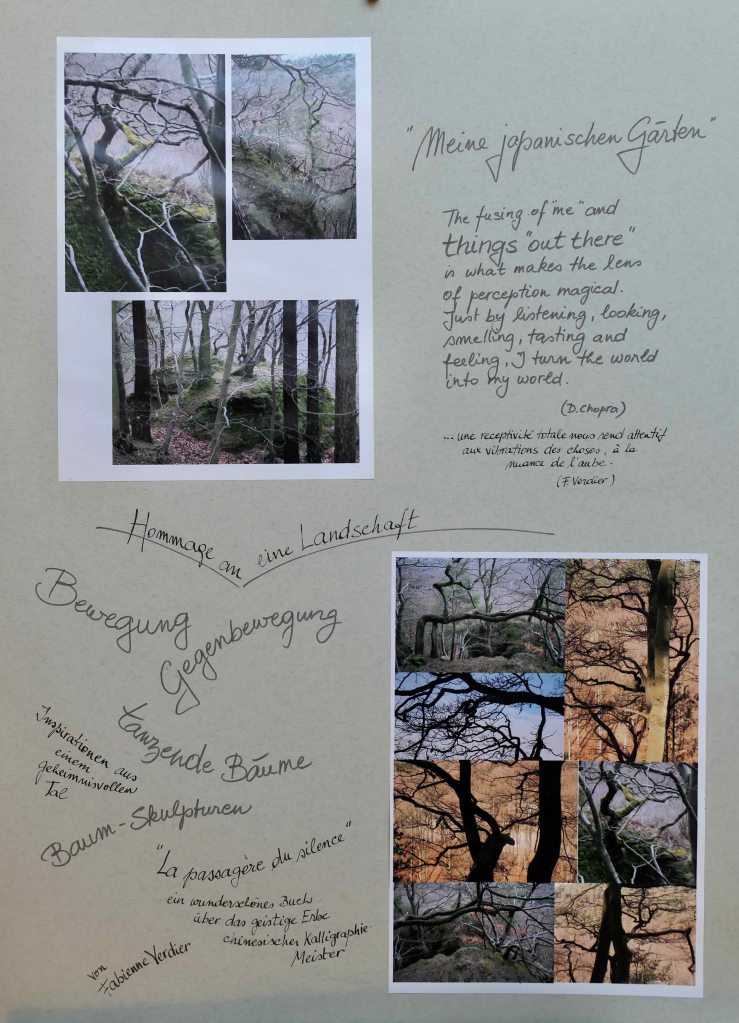 "Meine japanischen Gärten"
The fusing of "me" and
things "out there"
is what makes the lens
of perception magical.
Just by listening, looking,
smelling, tasting and
feeling, I turn the world
into my world.
(D. Chopra)
... une receptivité totale nous rend attentif
aux vibrations des choses, à la
nuance de l'aube.
(F. Verdier)
Hommage an eine Landschaft
Bewegung
Gegenbewegung
tanzende Bäume
Inspirationen aus
einem
geheimnisvollen
Tal
Baum-Skulpturen
"La passagère du silence"
ein wunderschönes Buch
über das geistige Erbe
chinesischer Kalligraphie-
Meister
von
Fabienne Verdier